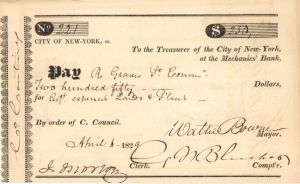 No 221 $ 250
CITY OF NEW-YORK, ss.
To the Treasurer of the City of New-York,
at the Mechanics' Bank,
Pay R Graves St Comm
Two hundred fifty Dollars,
for
By order of C. Council.
Walter Bowne
Mayor.
April 6 1829
J. Morton
Clerk. Compt'r.